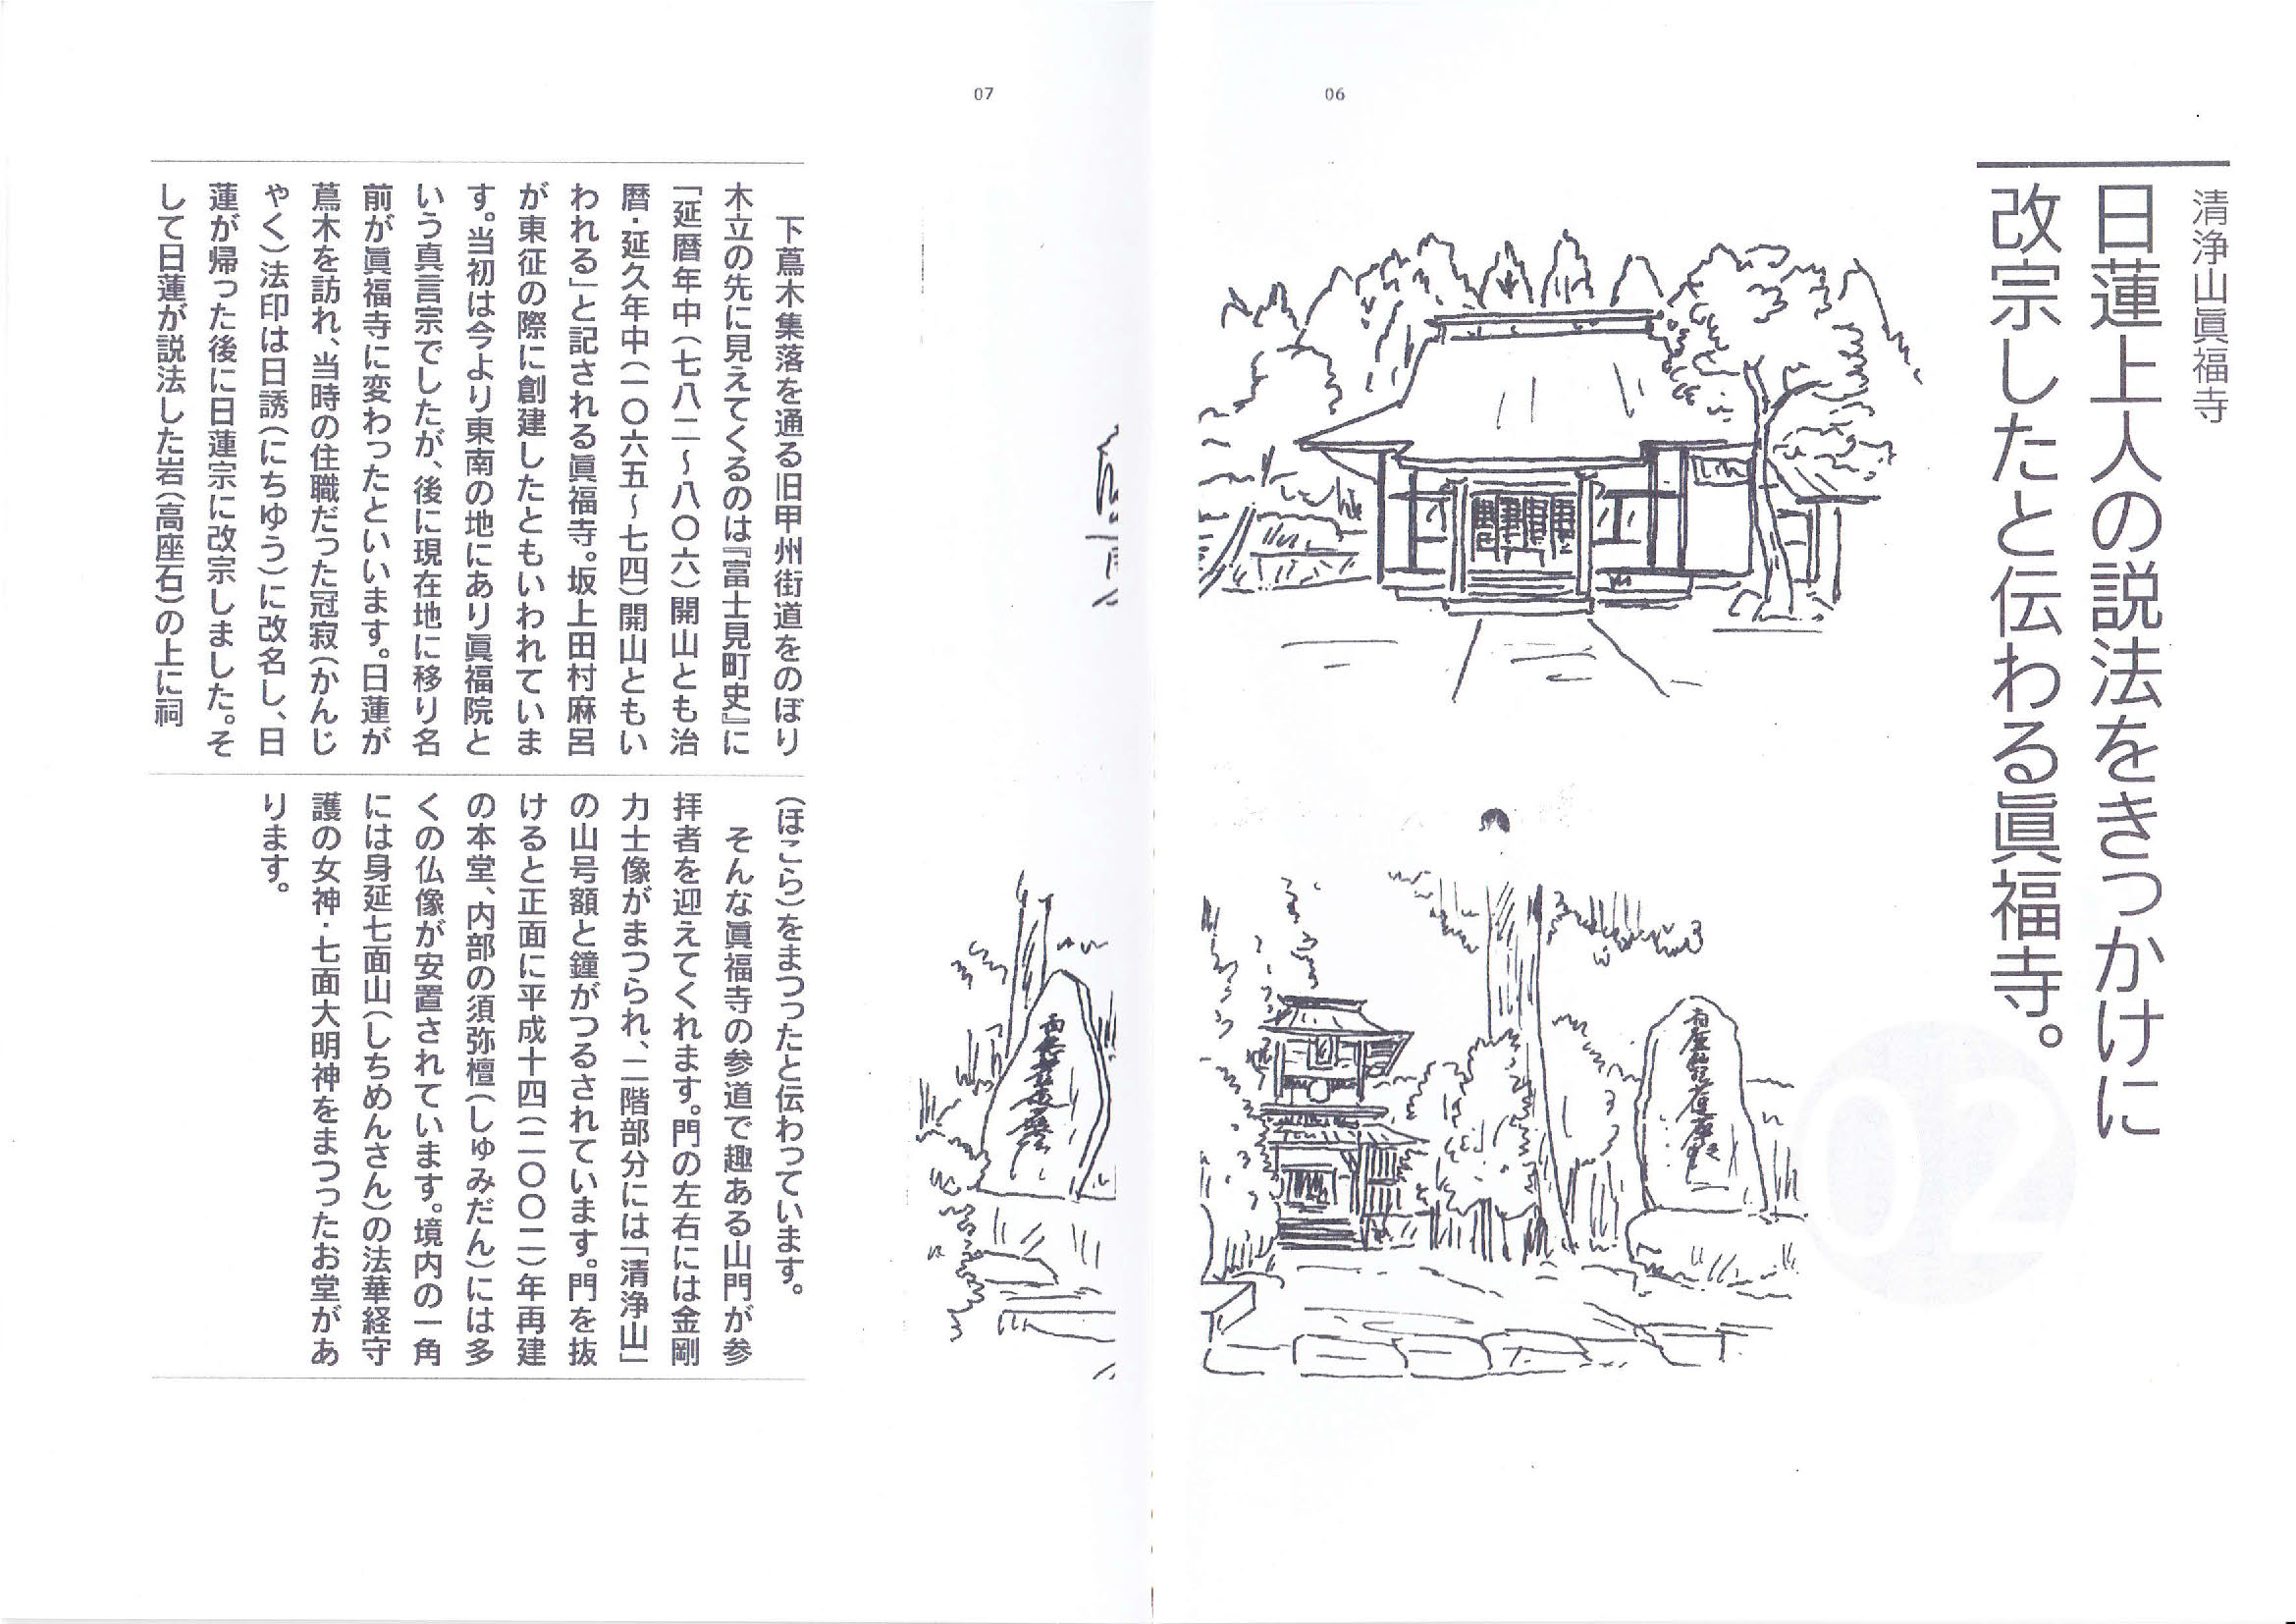 06
清浄山眞福寺
日蓮上人の説法をきっかけに
改宗したと伝わる眞福寺。
02
07
下蔦木集落を通る旧甲州街道をのぼり
木立の先に見えてくるのは『富士見町史』に
「延暦年中（七八二〜八〇六）開山とも治
暦・延久年中（一〇六五〜七四）開山ともい
われる」と記される眞福寺。坂上田村麻呂
が東征の際に創建したともいわれていま
す。当初は今より東南の地にあり眞福院と
いう真言宗でしたが、後に現在地に移り名
前が眞福寺に変わったといいます。日蓮が
蔦木を訪れ、当時の住職だった冠寂（かんじ
ゃく）法印は日誘（にちゆう）に改名し、日
蓮が帰った後に日蓮宗に改宗しました。そ
して日蓮が説法した岩（高座石）の上に祠
（ほこら）をまつったと伝わっています。
そんな眞福寺の参道で趣ある山門が参
拝者を迎えてくれます。門の左右には金剛
力士像がまつられ、二階部分には「清浄山」
の山号額と鐘がつるされています。門を抜
けると正面に平成十四（二〇〇二）年再建
の本堂、内部の須弥檀（しゅみだん）には多
くの仏像が安置されています。境内の一角
には身延七面山（しちめんさん）の法華経守
護の女神・七面大明神をまつったお堂があ
ります。